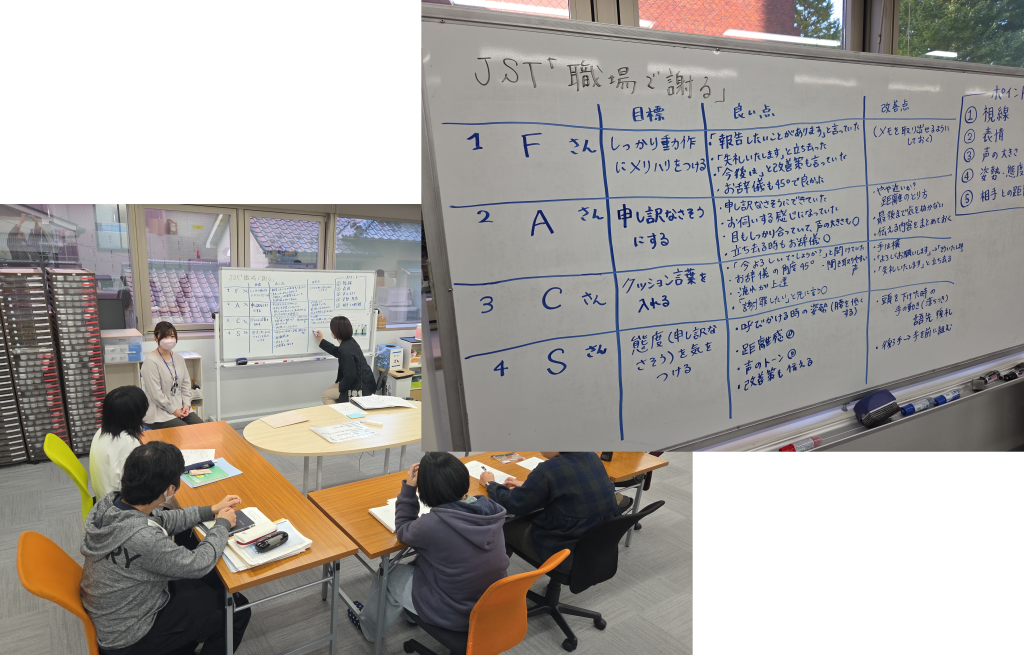 JST「職場で謝る」
目標
良い点
改善点
1 Fさん
しっかり動作
にメリハリをつける
・「報告したいことがあります」と言っていた
・「失礼いたします」と立ち去った
・「今後は」と改善策も言っていた
・お辞儀も45°で良かった
(メモを取り出せるように
しておく)
2 Aさん
申し訳なさそう
にする
・申し訳なさそうにできていた
・お伺いする感じになっていた
・目もしっかり合っていて、声の大きさも○
・立ち去る時もお辞儀○
・やや近いか?
距離のとり方
・最後まで気を抜かない
・伝える内容をまとめておく
3 Cさん
クッション言葉を
入れる
・「今よろしいでしょうか?」と聞けていた
・お辞儀の角度45°
・聞き取りやすい
声
・流れが上達
・「謝罪したい」と先に言う○
・手は横
・「失礼いたします」と立ち去る
4 Sさん
態度(申し訳な
さそう)を気を
つける
・呼びかける時の姿勢(腰を低く
する)
・距離感
・声のトーン
・改善策も伝える
・頭を下げた時の
手の動き(落ちつき)
語先後礼
・後ろ手→手を前に組む
ポイント
① 視線
② 表情
③ 声の大きさ
④ 姿勢・態度
⑤ 相手との距